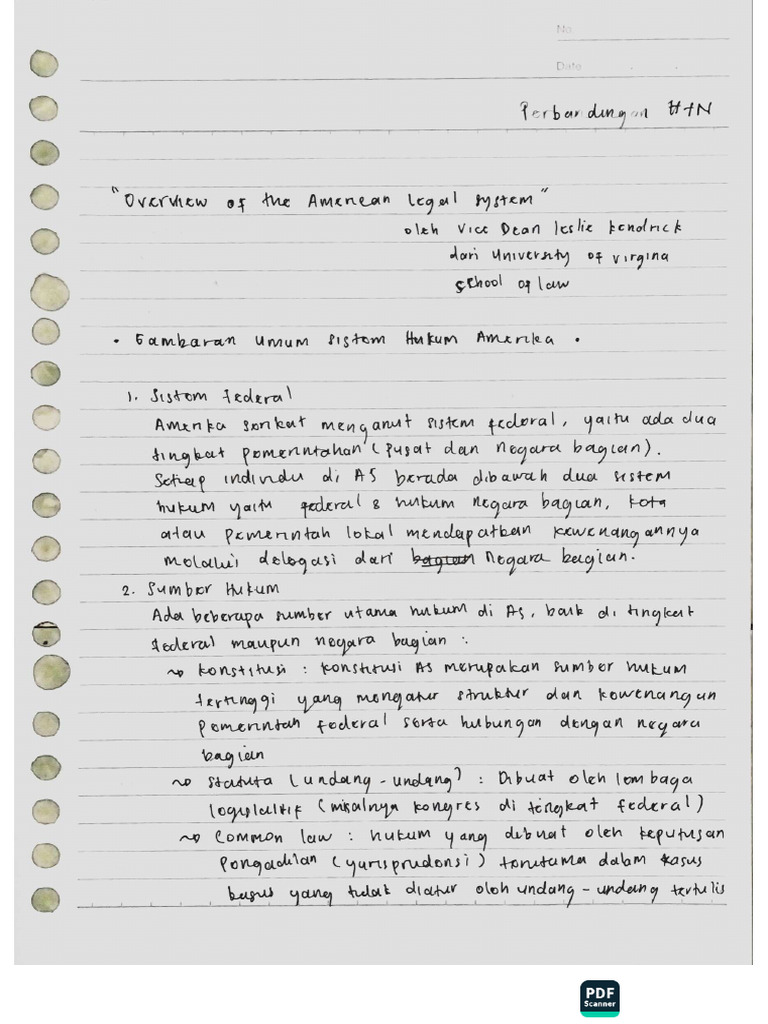 No.
Date
Perbandingan HTN
"Overview of the American Legal System"
oleh Vice Dean Leslie Kendrick
dari University of Virgina
School of Law
• Gambaran Umum Sistem Hukum Amerika •
1. Sistem Federal
Amerika Serikat menganut sistem federal, yaitu ada dua
tingkat pemerintahan (pusat dan negara bagian).
Setiap individu di AS berada dibawah dua sistem
hukum yaitu federal & hukum negara bagian, kota
atau pemerintah lokal mendapatkan kewenangannya
melalui delegasi dari bagian Negara bagian.
2. Sumber Hukum
Ada beberapa sumber utama hukum di AS, baik di tingkat
federal maupun negara bagian :
~> Konstitusi : konstitusi AS merupakan sumber hukum
tertinggi yang mengatur struktur dan kewenangan
pemerintah federal serta hubungan dengan negara
bagian
~> Statuta (undang-undang) : Dibuat oleh lembaga
legislaltif (misalnya kongres di tingkat federal)
~> Common law : hukum yang dibuat oleh keputusan
pengadilan (yurisprudensi) terutama dalam kasus
kasus yang tidak diatur oleh undang-undang tertulis
PDF
Scanner